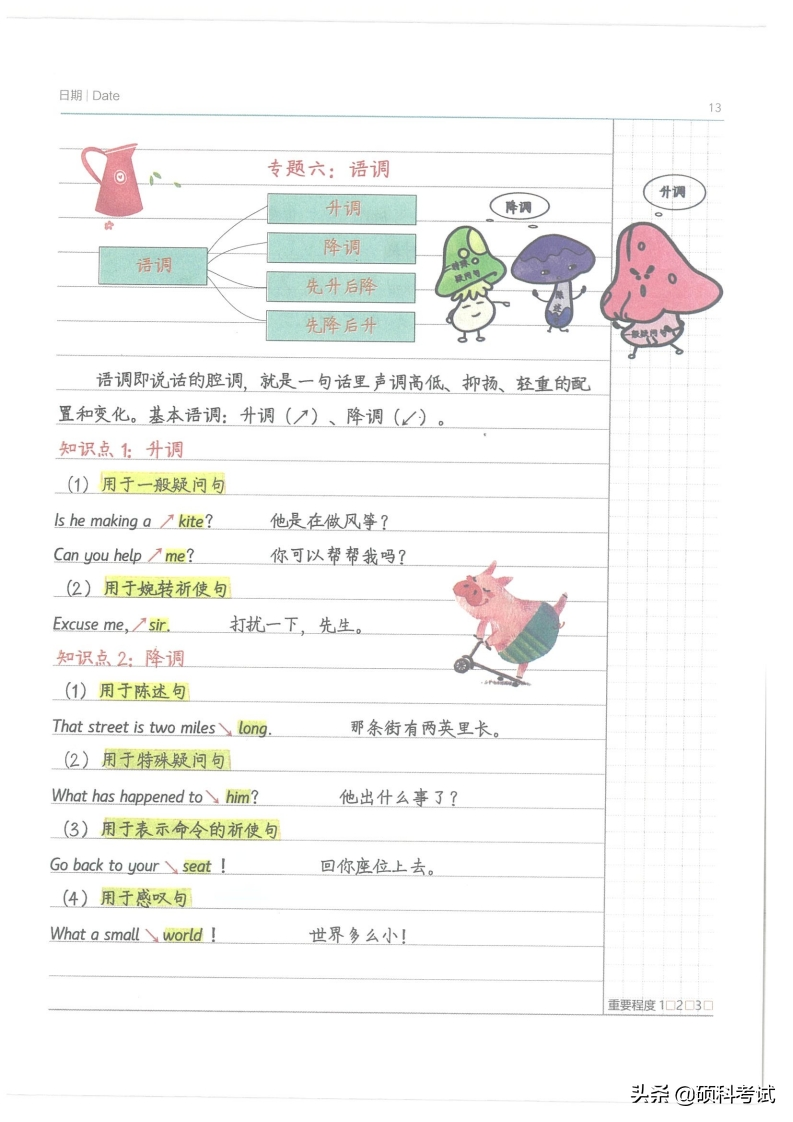 日期 | Date
13
专题六：语调
语调
升调
降调
先升后降
先降后升
降调
升调
特殊
疑问句
陈
述
一般疑问句
语调即说话的腔调，就是一句话里声调高低、抑扬、轻重的配
置和变化。基本语调：升调（↗）、降调（↙）。
知识点 1：升调
（1）用于一般疑问句
Is he making a ↗ kite? 他是在做风筝？
Can you help ↗ me? 你可以帮帮我吗？
（2）用于婉转祈使句
Excuse me,↗ sir. 打扰一下，先生。
知识点 2：降调
（1）用于陈述句
That street is two miles ↘ long. 那条街有两英里长。
（2）用于特殊疑问句
What has happened to ↘ him? 他出什么事了？
（3）用于表示命令的祈使句
Go back to your ↘ seat ! 回你座位上去。
（4）用于感叹句
What a small ↘ world ! 世界多么小！
重要程度 1□2□3□
头条 @硕科考试